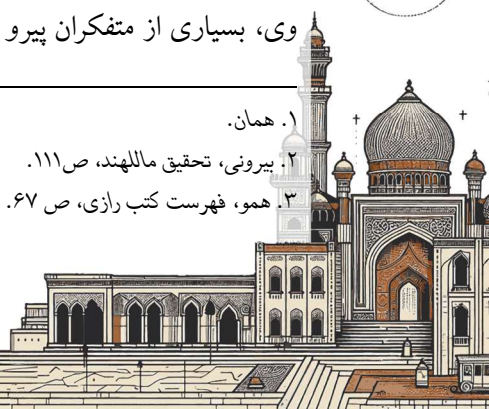 وی، بسیاری از متفکران پیرو
۱. همان.
۲. بیرونی، تحقیق ماللهند، ص۱۱۱.
۳. همو، فهرست کتب رازی، ص ۶۷.